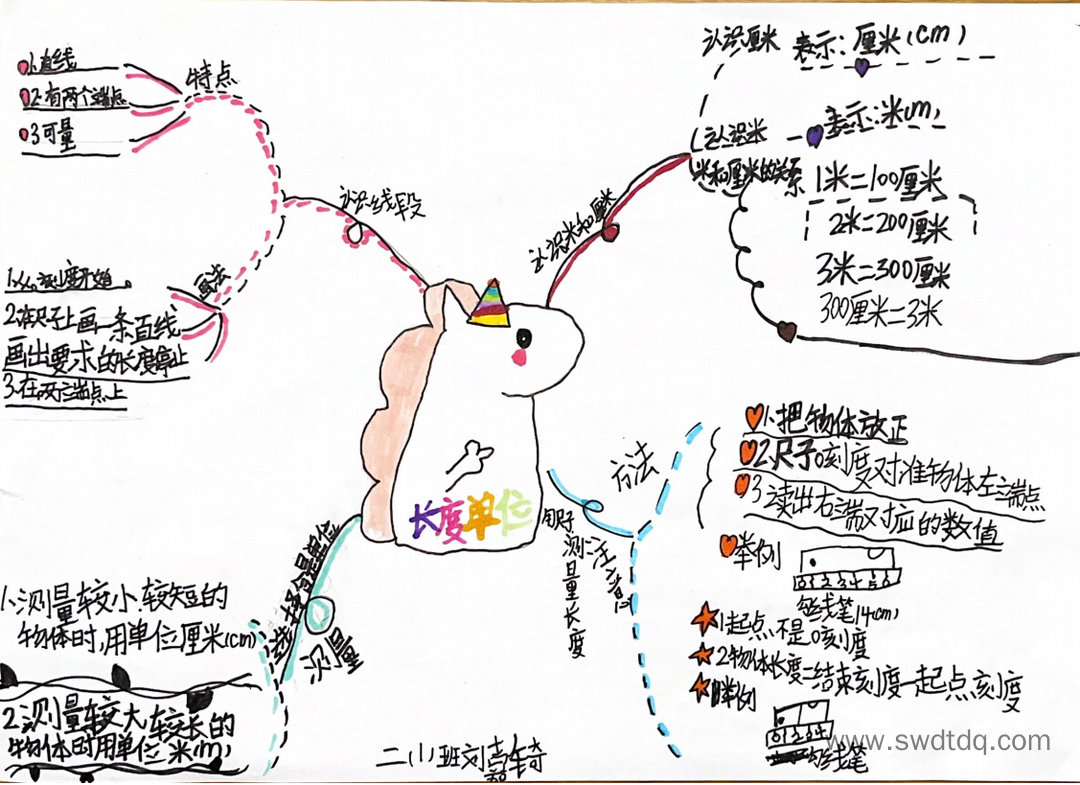 长度单位
认识线段
特点
1.直线
2.有两个端点
3.可量
画法
1.从0刻度开始。
2.在尺子上画一条直线
画出要求的长度停止
3.在两端点上
认识米和厘米
认识厘米
表示:厘米(cm)
认识米
表示:米(m)
米和厘米的关系
1米=100厘米
2米=200厘米
3米=300厘米
300厘米=3米
用尺子
测量长度
方法
1.把物体放正
2.尺子0刻度对准物体左端点
3.读出右端对应的数值
举例
0123456
铅线笔14cm
注意
1起点不是0刻度
2物体长度=结束刻度-起点刻度
举例
01234
测量
选择合适单位
1.测量较小.较短的
物体时,用单位厘米(cm)
2.测量较大.较长的
物体时用单位米(m)
二(1)班刘
www.swdtdq.com